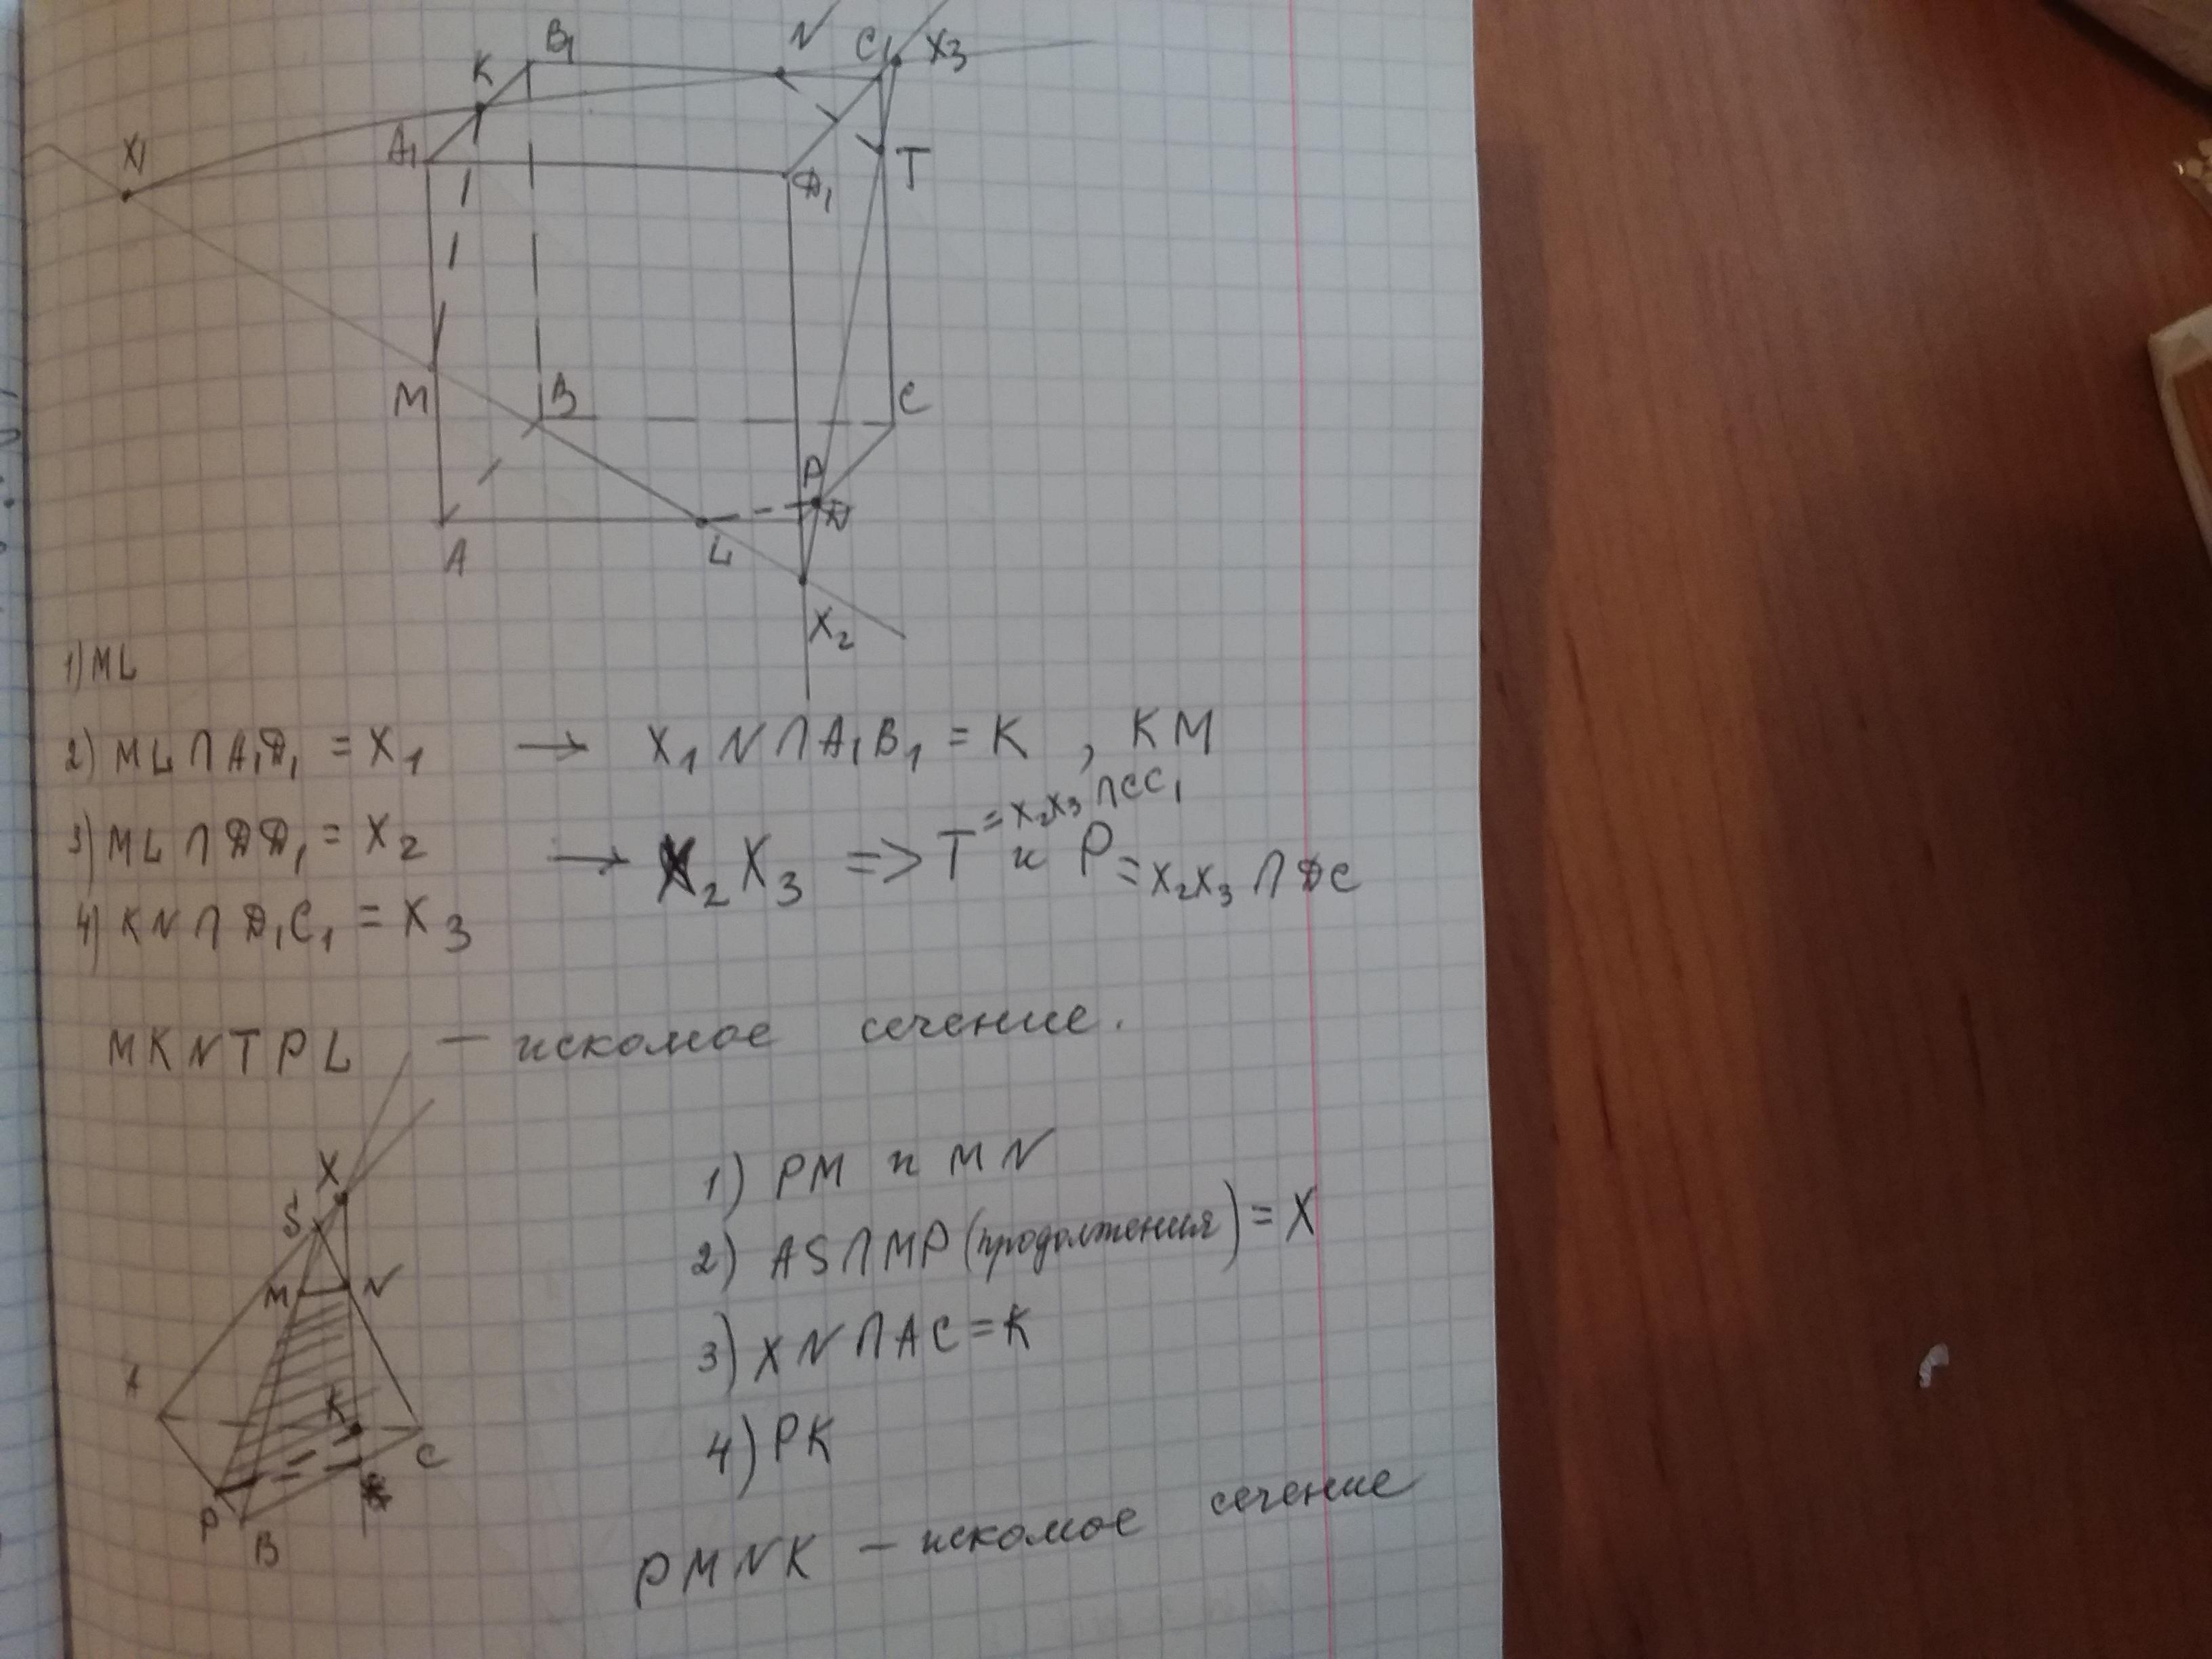 B₁
N
C₁
X₃
K
X₁
A₁
D₁
T
M
B
C
P
D
A
L
X₂
1) ML
2) ML ∩ A₁D₁ = X₁ → X₁N ∩ A₁B₁ = K , KM
3) ML ∩ DD₁ = X₂ → X₂X₃ => T = X₂X₃ ∩ CC₁ и P = X₂X₃ ∩ DC
4) KN ∩ D₁C₁ = X₃
MKNTPL – искомое сечение.
X
S
M
N
A
K
C
P
B
1) PM и MN
2) AS ∩ MP (продолжения) = X
3) XN ∩ AC = K
4) PK
PMNK – искомое сечение